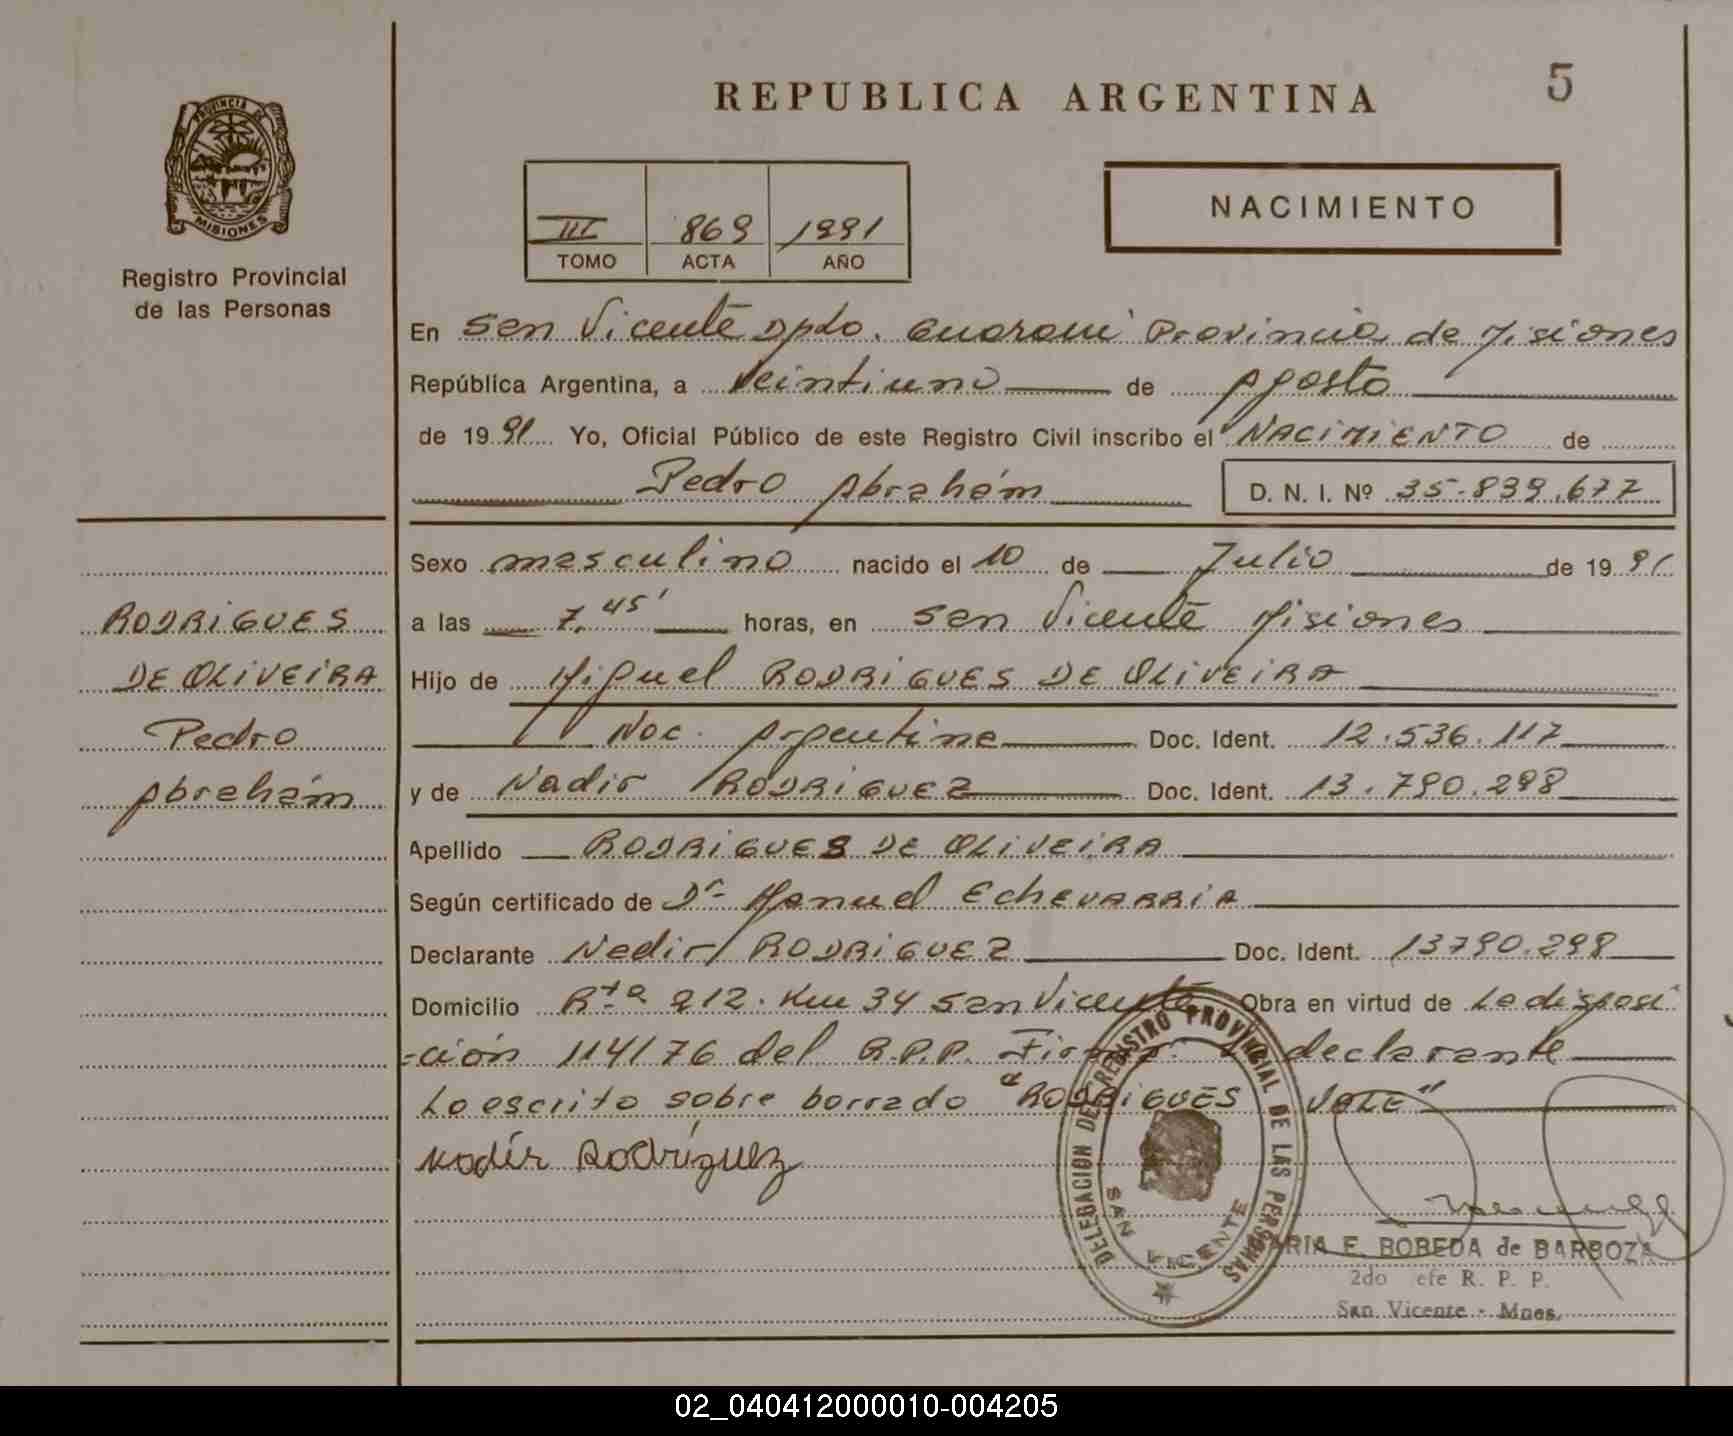 REPUBLICA ARGENTINA
5
PROVINCIA DE
MISIONES
Registro Provincial
de las Personas
III 869 1991
TOMO ACTA AÑO
NACIMIENTO
En San Vicente Dpto. Guaraní Provincia de Misiones
República Argentina, a Veintiuno de Agosto
de 1991 Yo, Oficial Público de este Registro Civil inscribo el NACIMIENTO de
Pedro Abrahám D. N. I. Nº 35.839.677
Sexo masculino nacido el 10 de Julio de 1991
a las 7,45' horas, en San Vicente Misiones
Hijo de Miguel RODRIGUES DE OLIVEIRA
Nac. Argentina Doc. Ident. 12.536.117
y de Nadir RODRIGUEZ Doc. Ident. 13.790.298
Apellido RODRIGUES DE OLIVEIRA
Según certificado de Dr. Manuel EchEVARRIA
Declarante Nadir RODRIGUEZ Doc. Ident. 13790.298
Domicilio Rta 212. Km 34 San Vicente Obra en virtud de La disposi
=ción 114/76 del R.P.P. Firma: declarante
Lo escrito sobre borrado "RODRIGUES VALE"
Nadir Rodríguez
RODRIGUES
DE OLIVEIRA
Pedro
Abrahám
DELEGACION DEL REGISTRO PROVINCIAL DE LAS PERSONAS
SAN VICENTE
ARIA E. BOBEDA de BARBOZA
2do efe R. P. P.
San Vicente - Mnes.
02_040412000010-004205